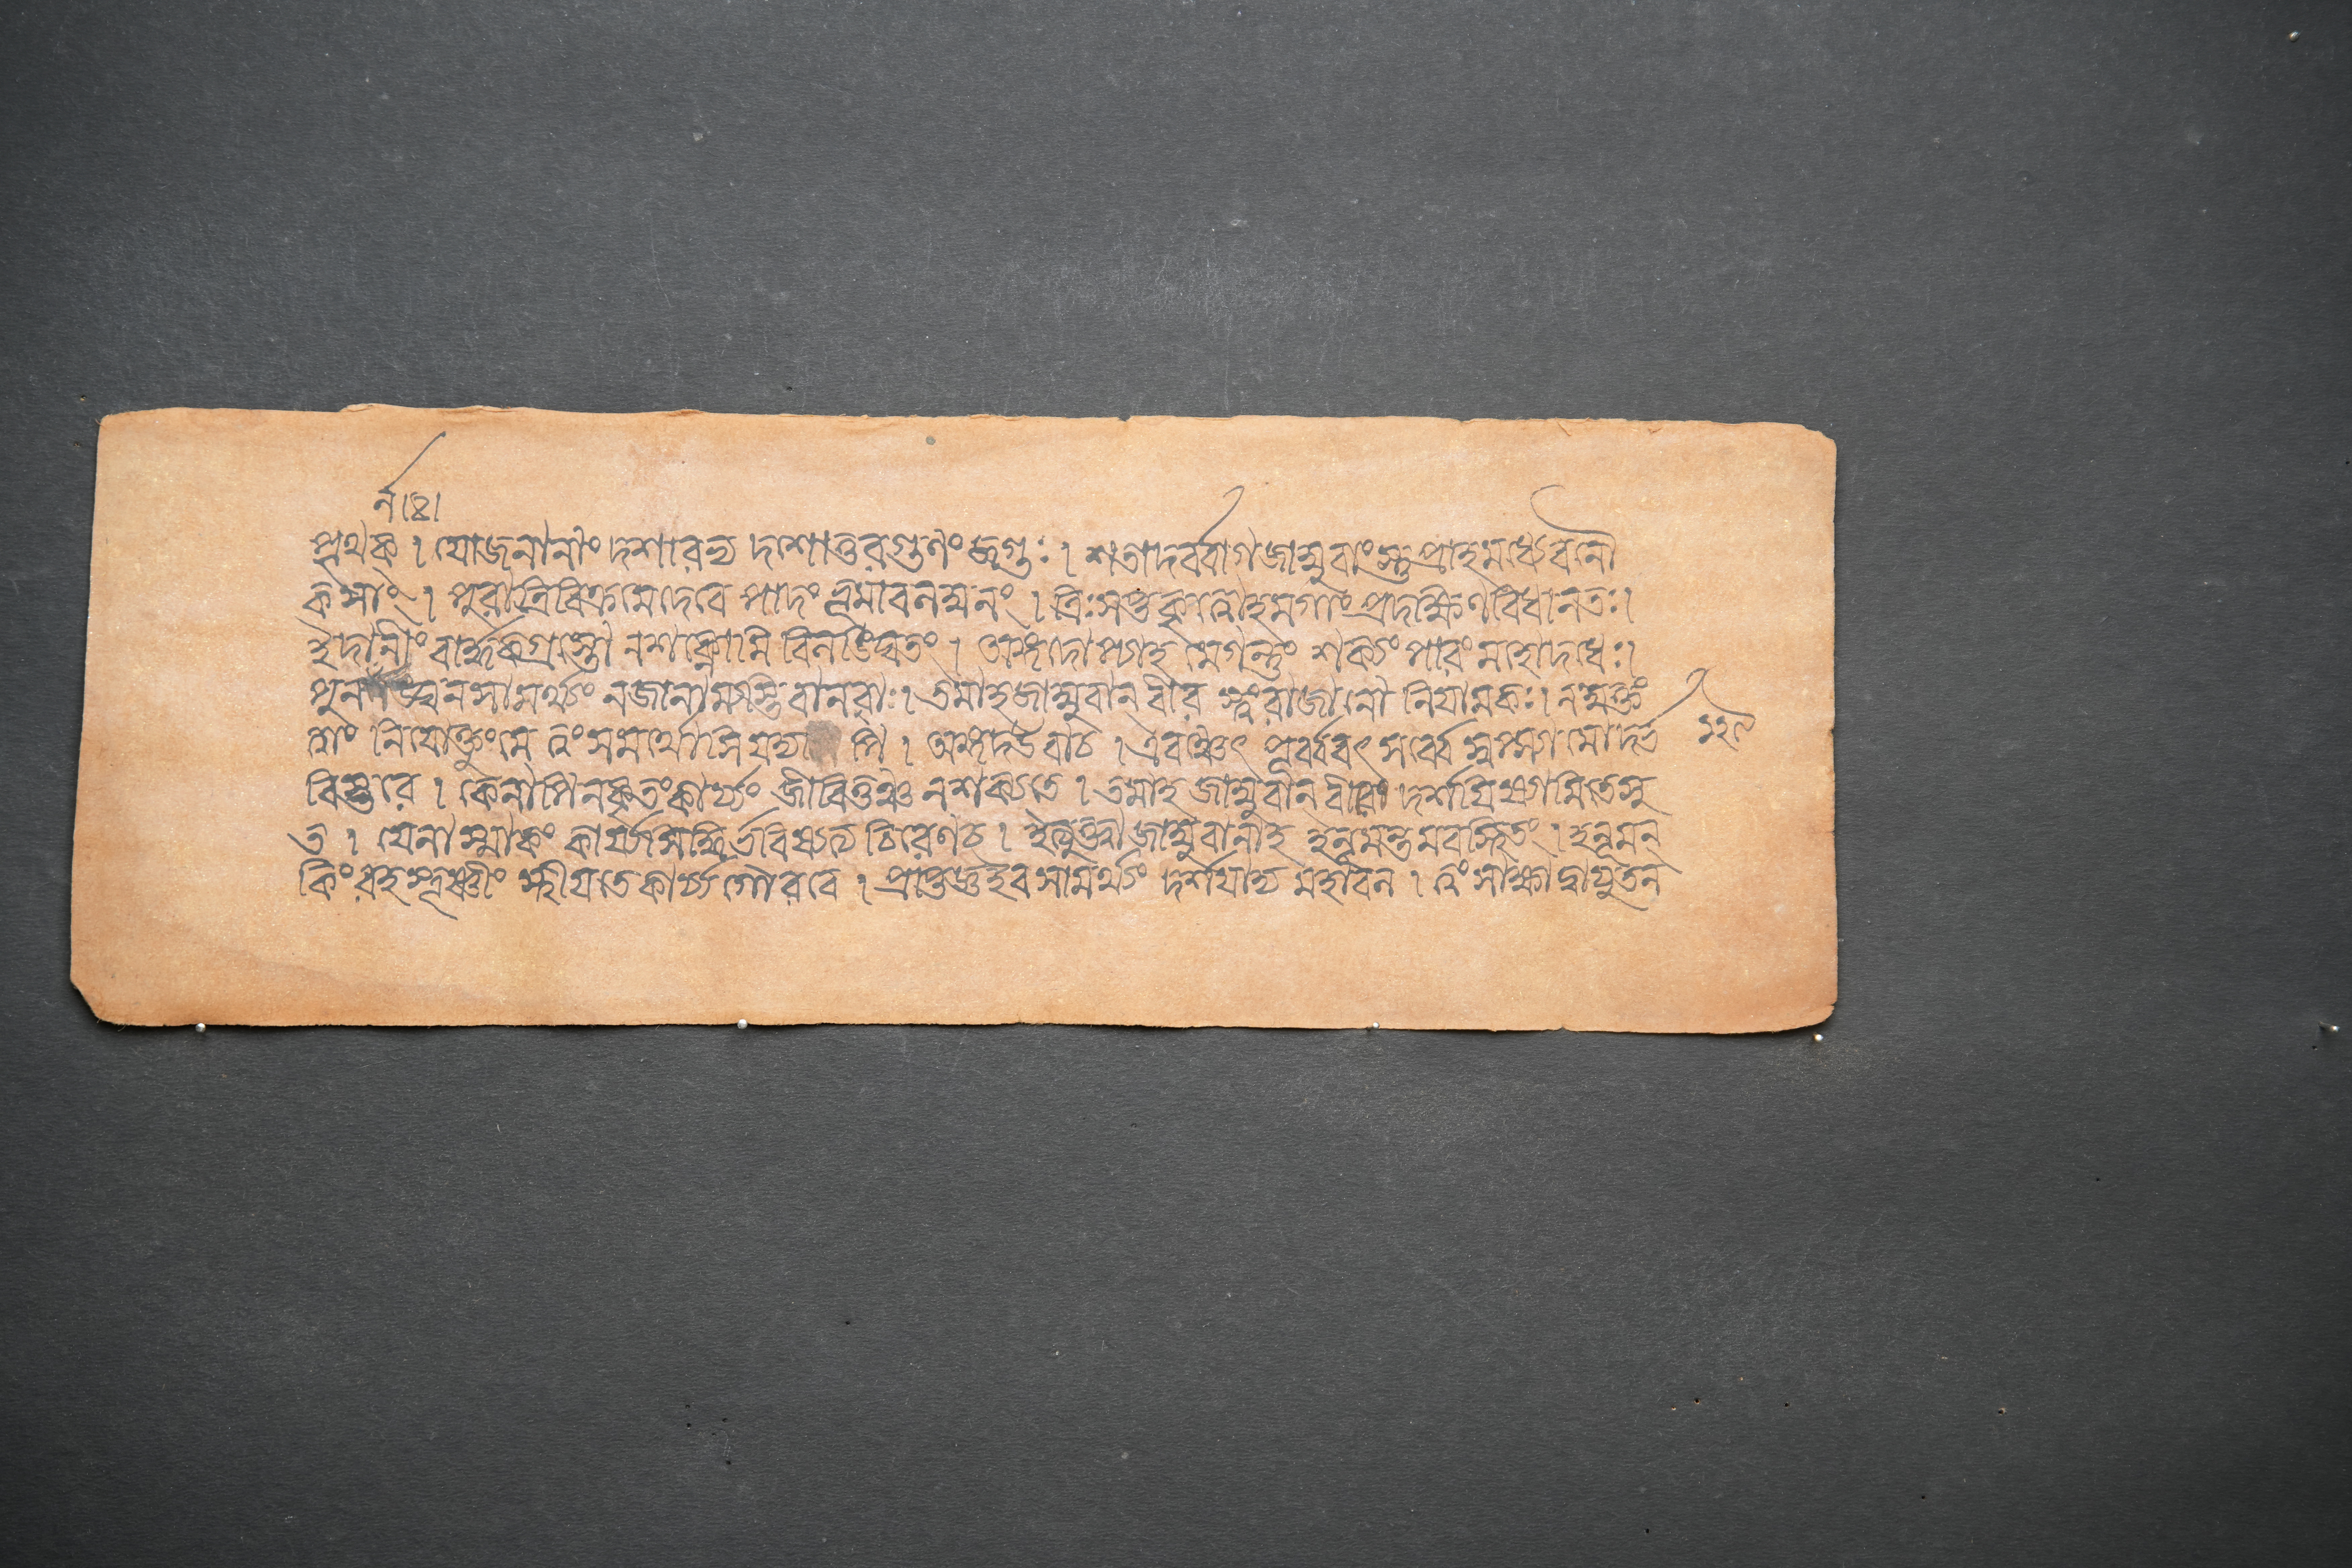 পৃথক্ । যোজনানাং দশারভ্য দশোত্তরগুণং জগুঃ । শতাদর্ব্বাগ্জাম্বুবাংস্তু প্রাহমধ্যেবনৌ
কসাং । পুরাত্রিবিক্রমেদেবে পাদং ভূমাবনক্ষনং । ত্রিঃসপ্তকৃত্বোহমগাং প্রদক্ষিণবিধানতঃ ।
ইদানীং বার্দ্ধকগ্রস্তো নশক্নোমি বিনঙ্ঘিতং । অঙ্গদোপ্যাহ মেগন্তুং শক্যং পারং মহোদধেঃ ।
পুনর্নঙ্ঘনসামর্থ্যং নজানাম্যস্তিবানবাঃ । তমাহজাম্বুবান্ বীর স্ত্বংরাজানো নিয়ামকঃ । নযুক্তং
ত্বাং নিযোক্তুংমে ত্বংসমর্থোসিযদ্য পি । অঙ্গদউবাচ । এবঞ্চেৎ পূর্ব্ববৎ সর্ব্বে স্বপ্স্যামোদর্ভ ১২৯
বিস্তরে । কেনাপিনকৃতংকার্য্যং জীবিতুঞ্চ নশক্যতে । তমাহ জাম্বুবান্ বীরো দর্শয়িষ্যামিতেসু
ত । যেনাস্মাকং কার্য্যসিদ্ধির্ভবিষ্যত্য চিরেণচ । ইত্যুক্ত্বা জাম্বুবানাহ হনূমন্তমবস্থিতং । হনূমন্
কিং রহস্তূষ্ণীং স্থীয়তেকার্য্যগৌরবে । প্রাপ্তেজ্ঞইবসামর্থ্যং দর্শয়াদ্য মহাবন । ত্বং সাক্ষাদ্বায়ুতন